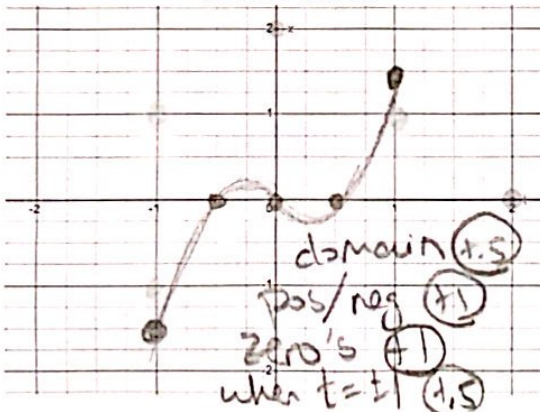 2
x
1
-2
-1
0
1
2
domain +.5
-1
pos/neg +1
zero's +1
-2
when t=±1 +.5